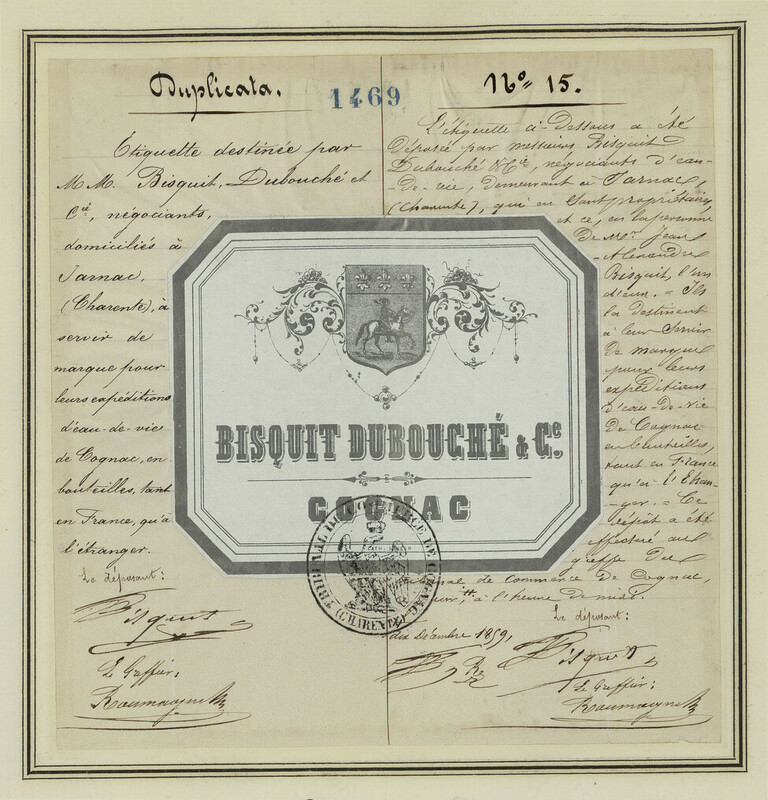 Duplicata.
1469
Nº 15.
Étiquette destinée par
M.M. Bisquit, Dubouché et
Cie, négociants,
domiciliés à
Jarnac,
(Charente), à
servir de
marque pour
leurs expéditions
d'eau-de-vie
de Cognac, en
bouteilles, tant
en France, qu'à
l'étranger.
Le déposant:
Bisquit
Le Greffier:
L'étiquette ci-dessous a été
déposée par messieurs Bisquit
Dubouché & Cie, négociants d'eau-
-de-vie, demeurant à Jarnac,
(Charente), qui en sont propriétaires,
et ce, en la personne
de Mr Jean
Alexandre
Bisquit, l'un
d'eux. = Ils
la destinent
à leur servir
de marque
pour leurs
expéditions
d'eau-de-vie
de Cognac
en bouteilles,
tant en France
qu'à l'Étran-
-ger. = Ce
dépôt a été
effectué au
greffe du
de commerce de Cognac,
à l'heure de midi.
dix Décembre 1859,
Le déposant:
Bisquit
Le Greffier:
BISQUIT DUBOUCHÉ & Ce.
COGNAC
TRIBUNAL DE COMMERCE DE COGNAC
(CHARENTE)